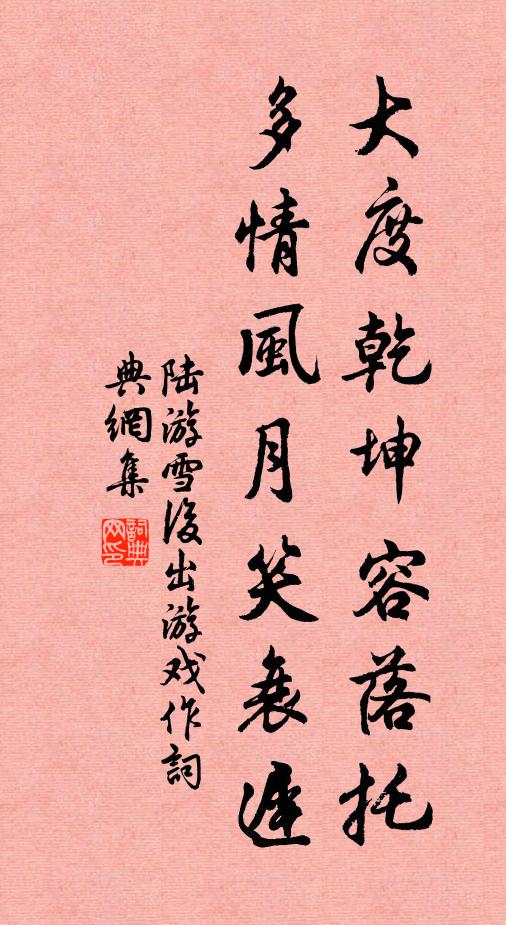 大度乾坤容落托
多情風月笑衰遲
陆游雪後出游戏作詞
典網集
詞典网印